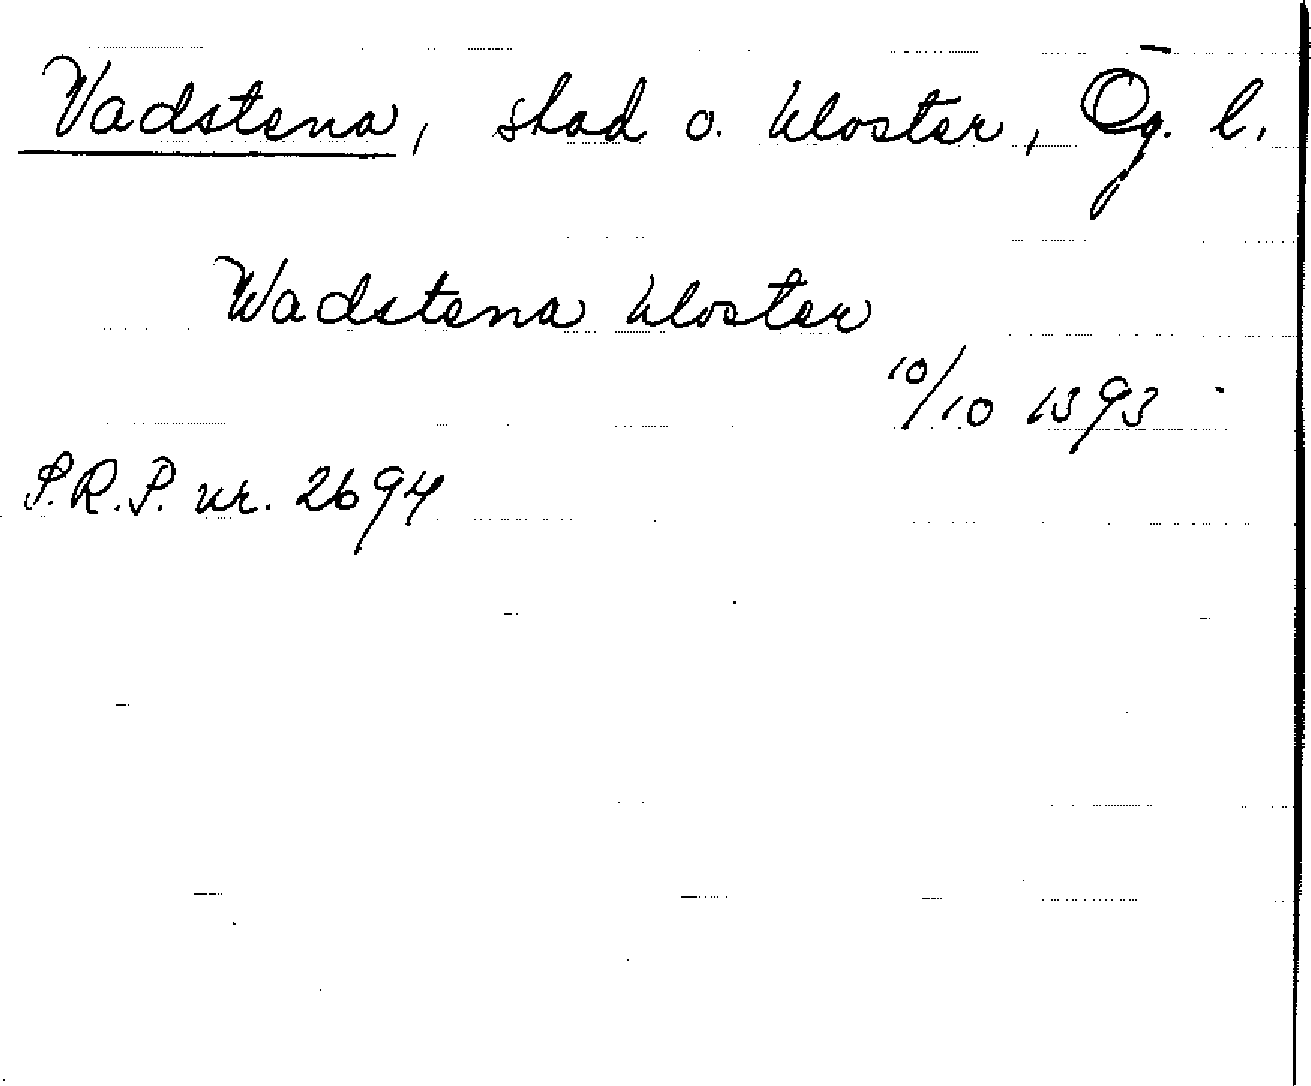 Vadstena, stad o. kloster, Ög. l.
Wadstena kloster
10/10 1393
S.R.P. nr. 2694